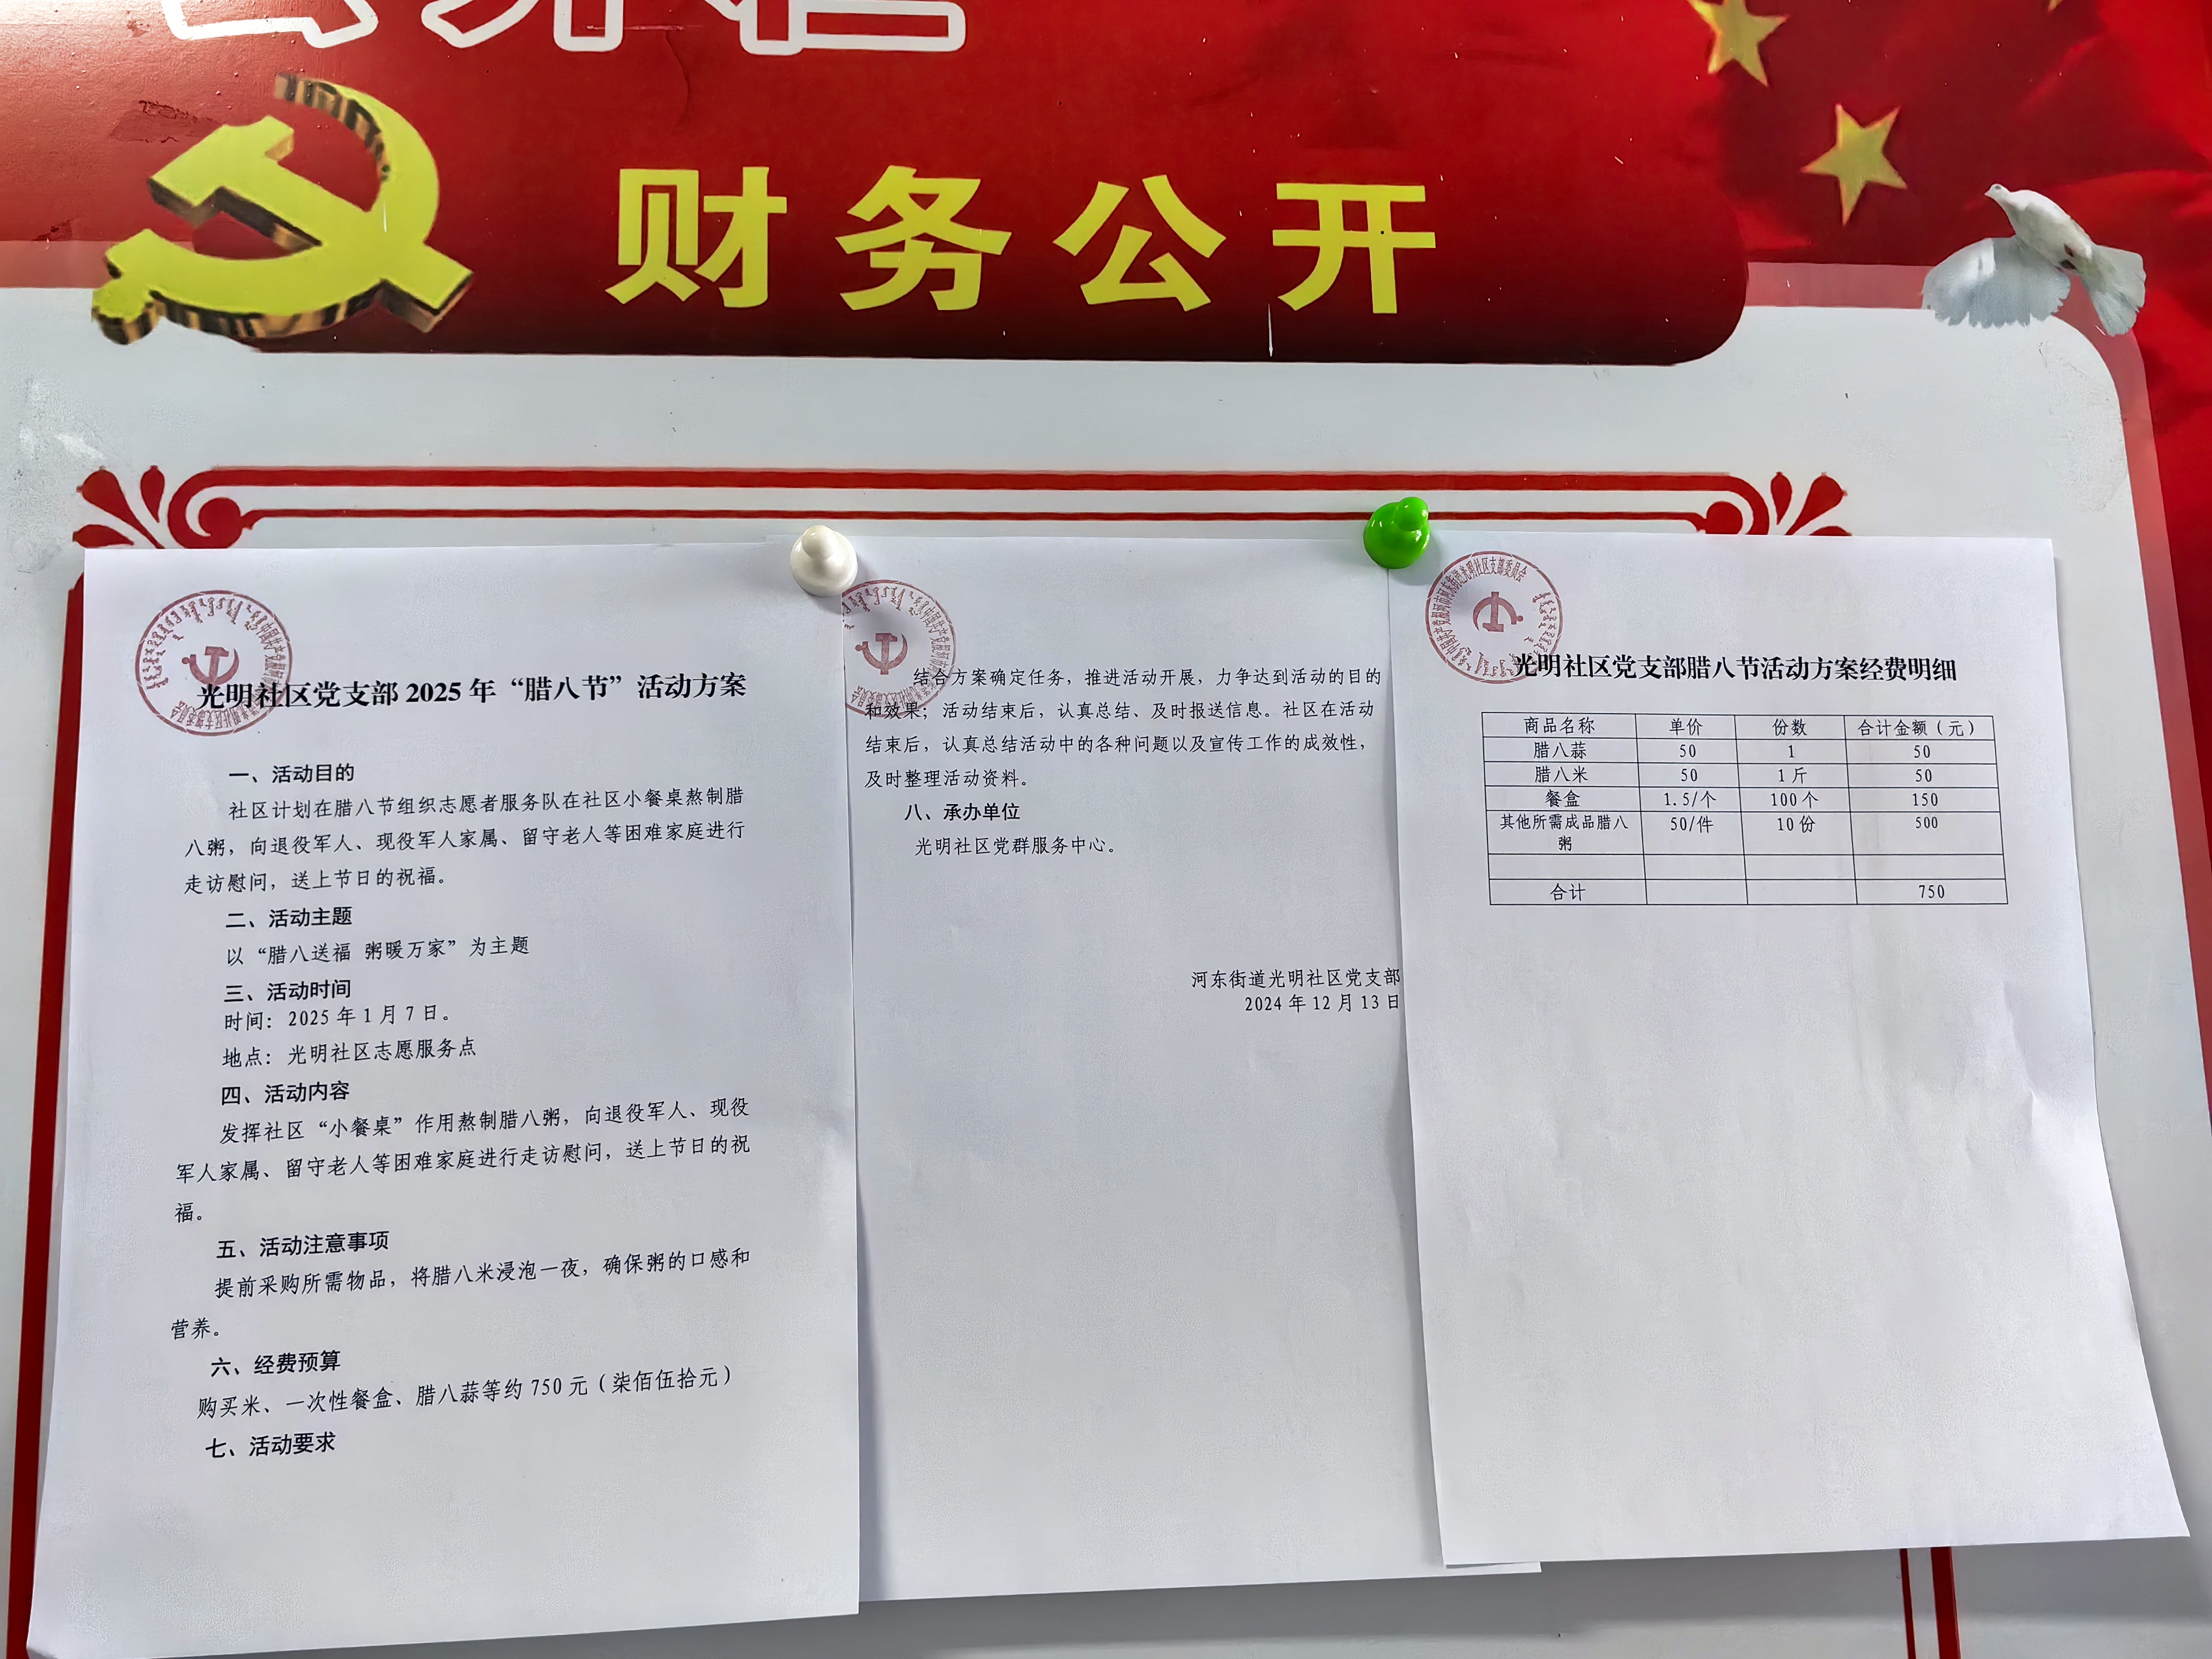 财务公开
光明社区党支部 2025 年“腊八节”活动方案
一、活动目的
社区计划在腊八节组织志愿者服务队在社区小餐桌熬制腊
八粥，向退役军人、现役军人家属、留守老人等困难家庭进行
走访慰问，送上节日的祝福。
二、活动主题
以“腊八送福 粥暖万家”为主题
三、活动时间
时间：2025 年 1 月 7 日。
地点：光明社区志愿服务点
四、活动内容
发挥社区“小餐桌”作用熬制腊八粥，向退役军人、现役
军人家属、留守老人等困难家庭进行走访慰问，送上节日的祝
福。
五、活动注意事项
提前采购所需物品，将腊八米浸泡一夜，确保粥的口感和
营养。
六、经费预算
购买米、一次性餐盒、腊八蒜等约 750 元（柒佰伍拾元）
七、活动要求
结合方案确定任务，推进活动开展，力争达到活动的目的
和效果；活动结束后，认真总结、及时报送信息。社区在活动
结束后，认真总结活动中的各种问题以及宣传工作的成效性，
及时整理活动资料。
八、承办单位
光明社区党群服务中心。
河东街道光明社区党支部
2024 年 12 月 13 日
光明社区党支部腊八节活动方案经费明细
商品名称 单价 份数 合计金额（元）
腊八蒜 50 1 50
腊八米 50 1 斤 50
餐盒 1.5/个 100 个 150
其他所需成品腊八 50/件 10 份 500
粥
合计 750